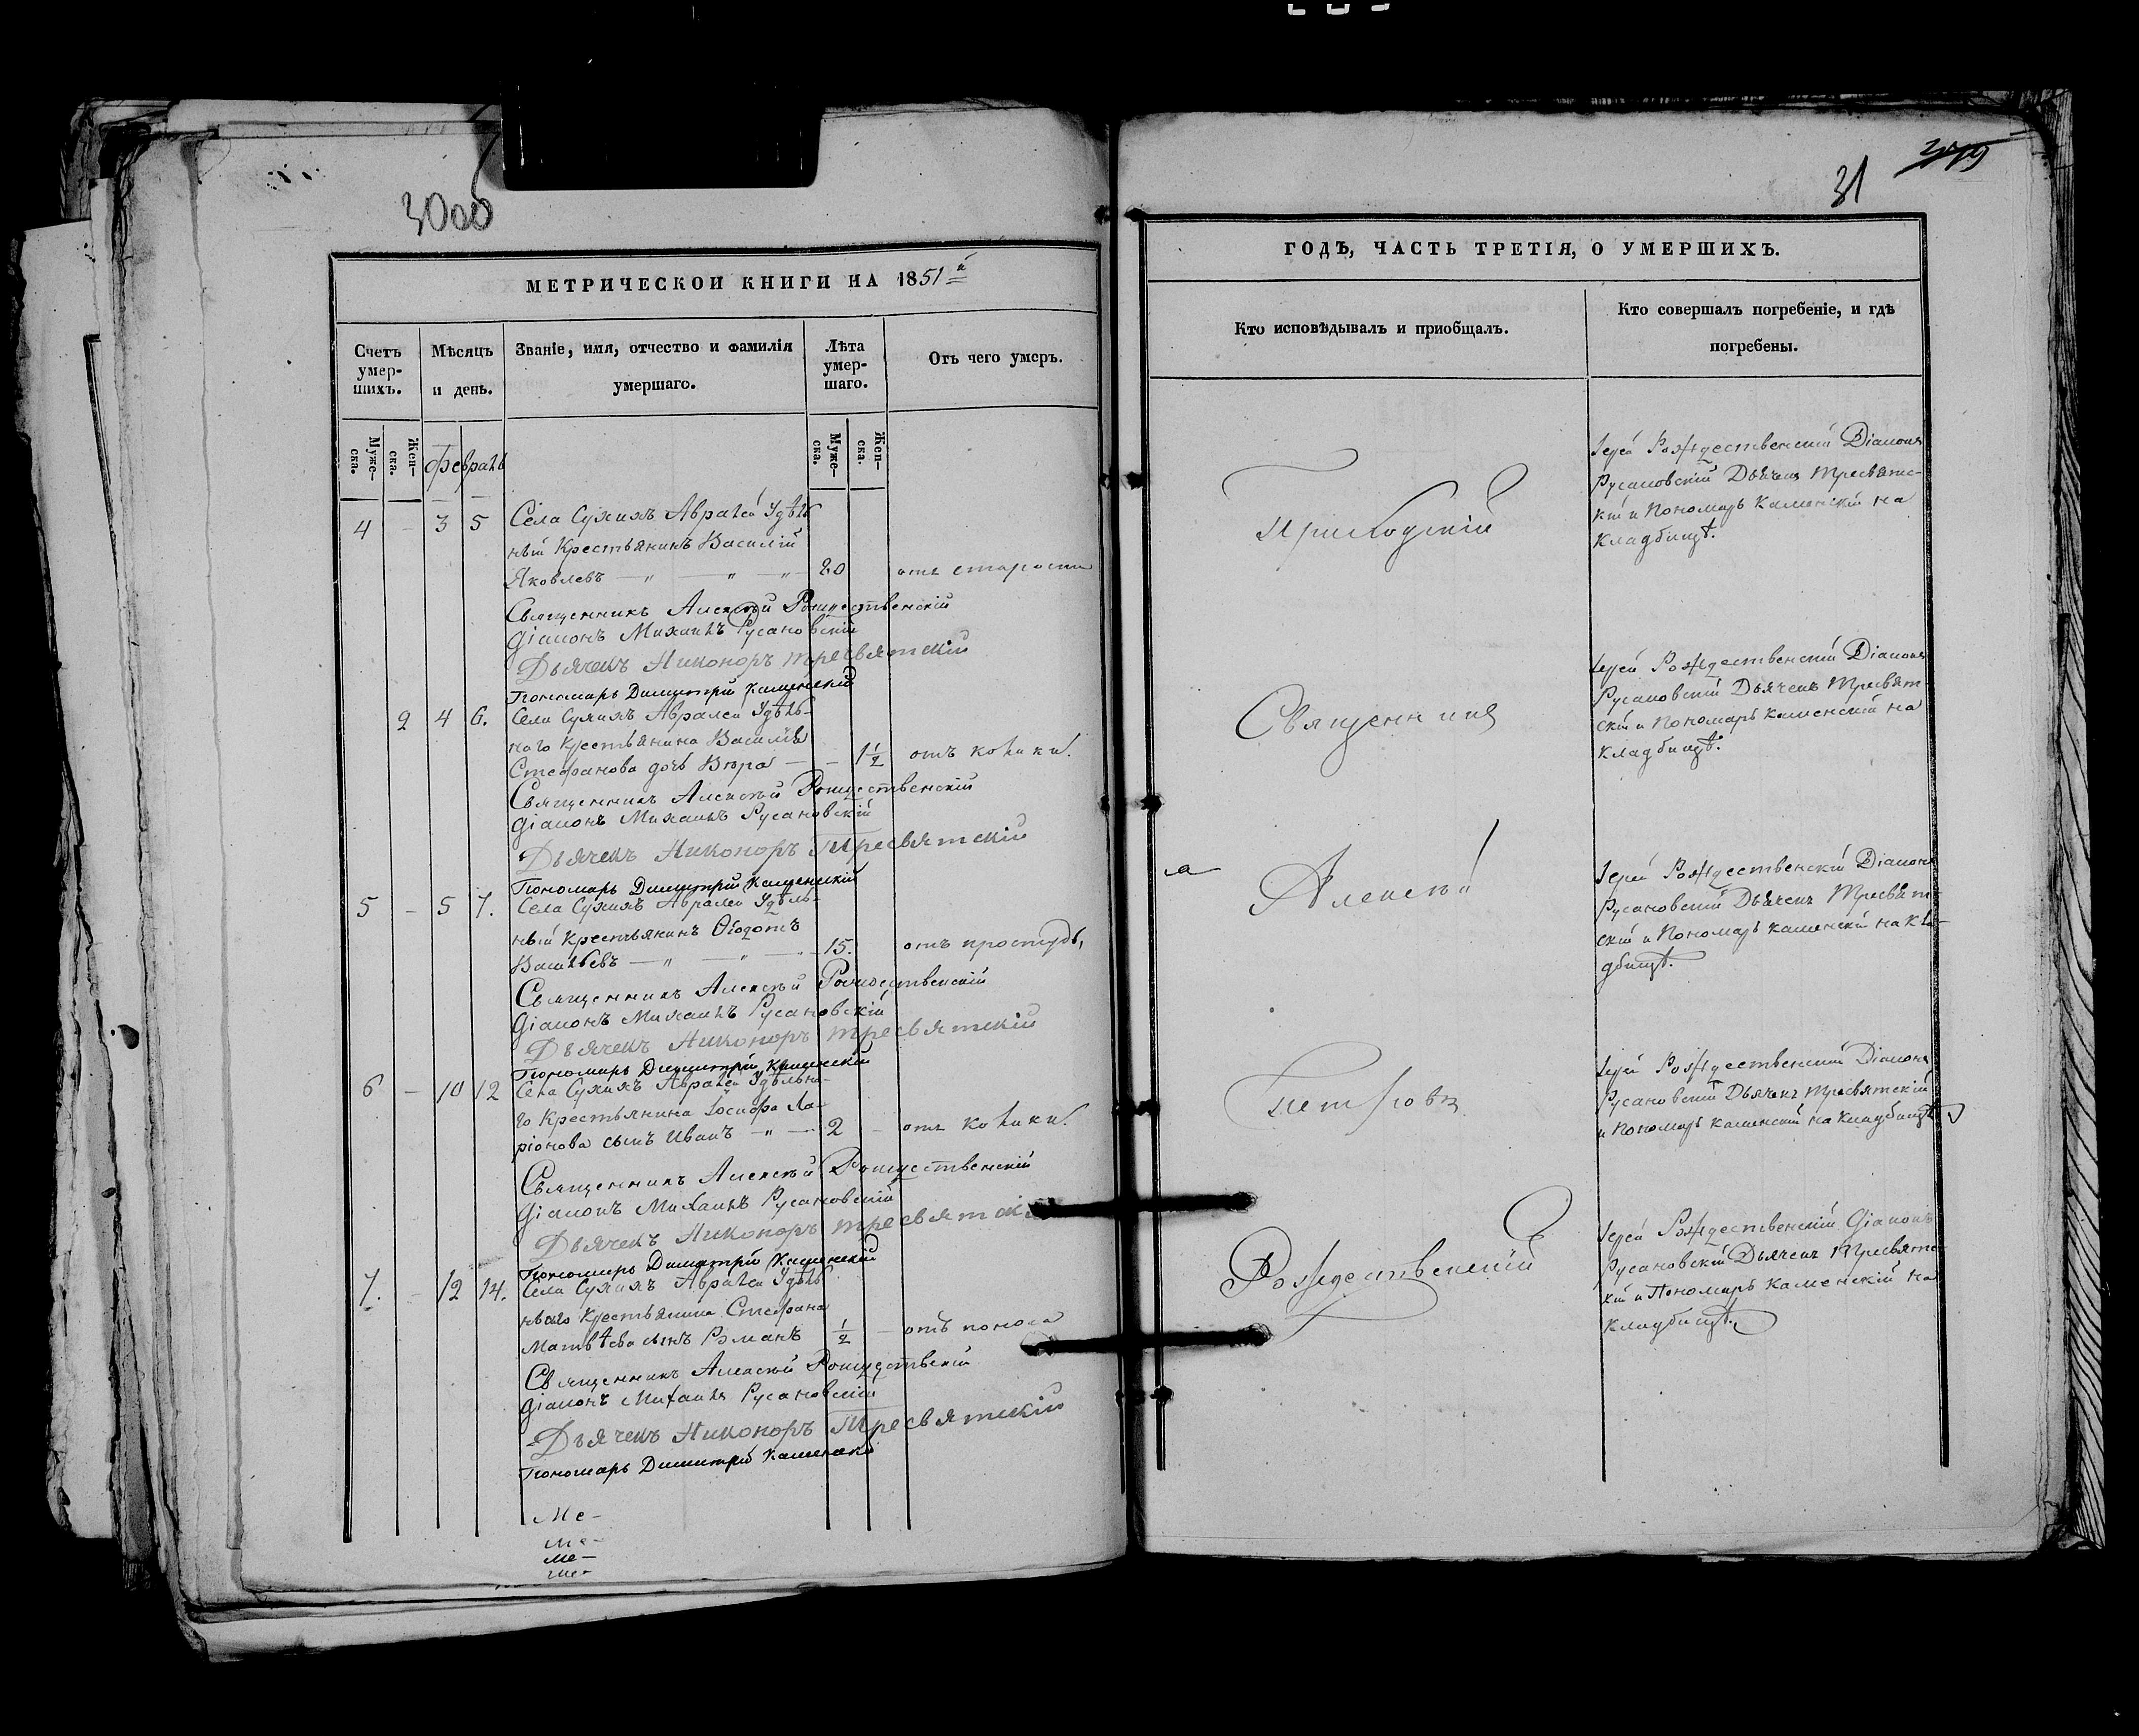 3000
МЕТРИЧЕСКОЙ КНИГИ НА 1851 й
Счетъ умер-шихъ.
Мѣсяцъ и день.
Званіе, имя, отчество и фамилія умершаго.
Лѣта умер-шаго.
Отъ чего умеръ.
Муже-ска.
Жен-ска.
Февраль
Муже-ска.
Жен-ска.
4 - 3 5 Села Сухихъ Авралей Удѣль
ный Крестьянинъ Василій
Яковлевъ — „ — „ — „ 80 отъ старости
Священникъ Алексѣй Рождественскій
Діаконъ Михаилъ Русановскій
Дьячекъ Никоноръ Тресвятскій
Пономарь Димитрій Каменскій
2 4 6. Села Сухихъ Авралей Удѣль-
наго Крестьянина Василія
Стефанова дочь Вѣра — - 1 1/2 отъ колики.
Священникъ Алексѣй Рождественскій
Діаконъ Михаилъ Русановскій
Дьячекъ Никоноръ Тресвятскій
Пономарь Димитрій Каменскій
5 - 5 7. Села Сухихъ Авралей Удѣль-
ный Крестьянинъ Ѳеодотъ
Васильевъ — „ — „ — „ 15. отъ простуды,
Священникъ Алексѣй Рождественскій
Діаконъ Михаилъ Русановскій
Дьячекъ Никоноръ Тресвятскій
Пономарь Димитрій Каменскій
6 - 10 12 Села Сухихъ Авралей Удѣльна-
го Крестьянина Іосифа Ла-
ріонова сынъ Иванъ — „ — 2 - отъ колики.
Священникъ Алексѣй Рождественскій
Діаконъ Михаилъ Русановскій
Дьячекъ Никоноръ Тресвятскій
Пономарь Димитрій Каменскій
7. - 12 14. Села Сухихъ Авралей Удѣль
наго Крестьянина Стефана
Матвѣева сынъ Романъ 1/2 - отъ поноса
Священникъ Алексѣй Рождественскій
Діаконъ Михаилъ Русановскій
Дьячекъ Никоноръ Тресвятскій
Пономарь Димитрій Каменскі
Ме-
Ме-
Ме-
Ме-
31
ГОДЪ, ЧАСТЬ ТРЕТІЯ, О УМЕРШИХЪ.
Кто исповѣдывалъ и пріобщалъ.
Кто совершалъ погребеніе, и гдѣ
погребены.
Приходскій
Іерей Рождественскій Діаконъ
Русановскій Дьячекъ Тресвятс-
кій и Пономарь Каменскій на
Кладбищѣ.
Священникъ
Іерей Рождественскій Діаконъ
Русановскій Дьячекъ Тресвят
скій и Пономарь Каменскій на
Кладбищѣ.
Алексѣй
Іерей Рождественскій Діаконъ
Русановскій Дьячекъ Тресвят
скій и Пономарь Каменскій на Кла-
дбищѣ.
Петровъ
Іерей Рождественскій Діаконъ
Русановскій Дьячекъ Тресвятскій
и Пономарь Каменскій на Кладбищѣ
Рождественскій
Іерей Рождественскій Діаконъ
Русановскій Дьячекъ Тресвятс-
кій и Пономарь Каменскій на
Кладбищѣ.